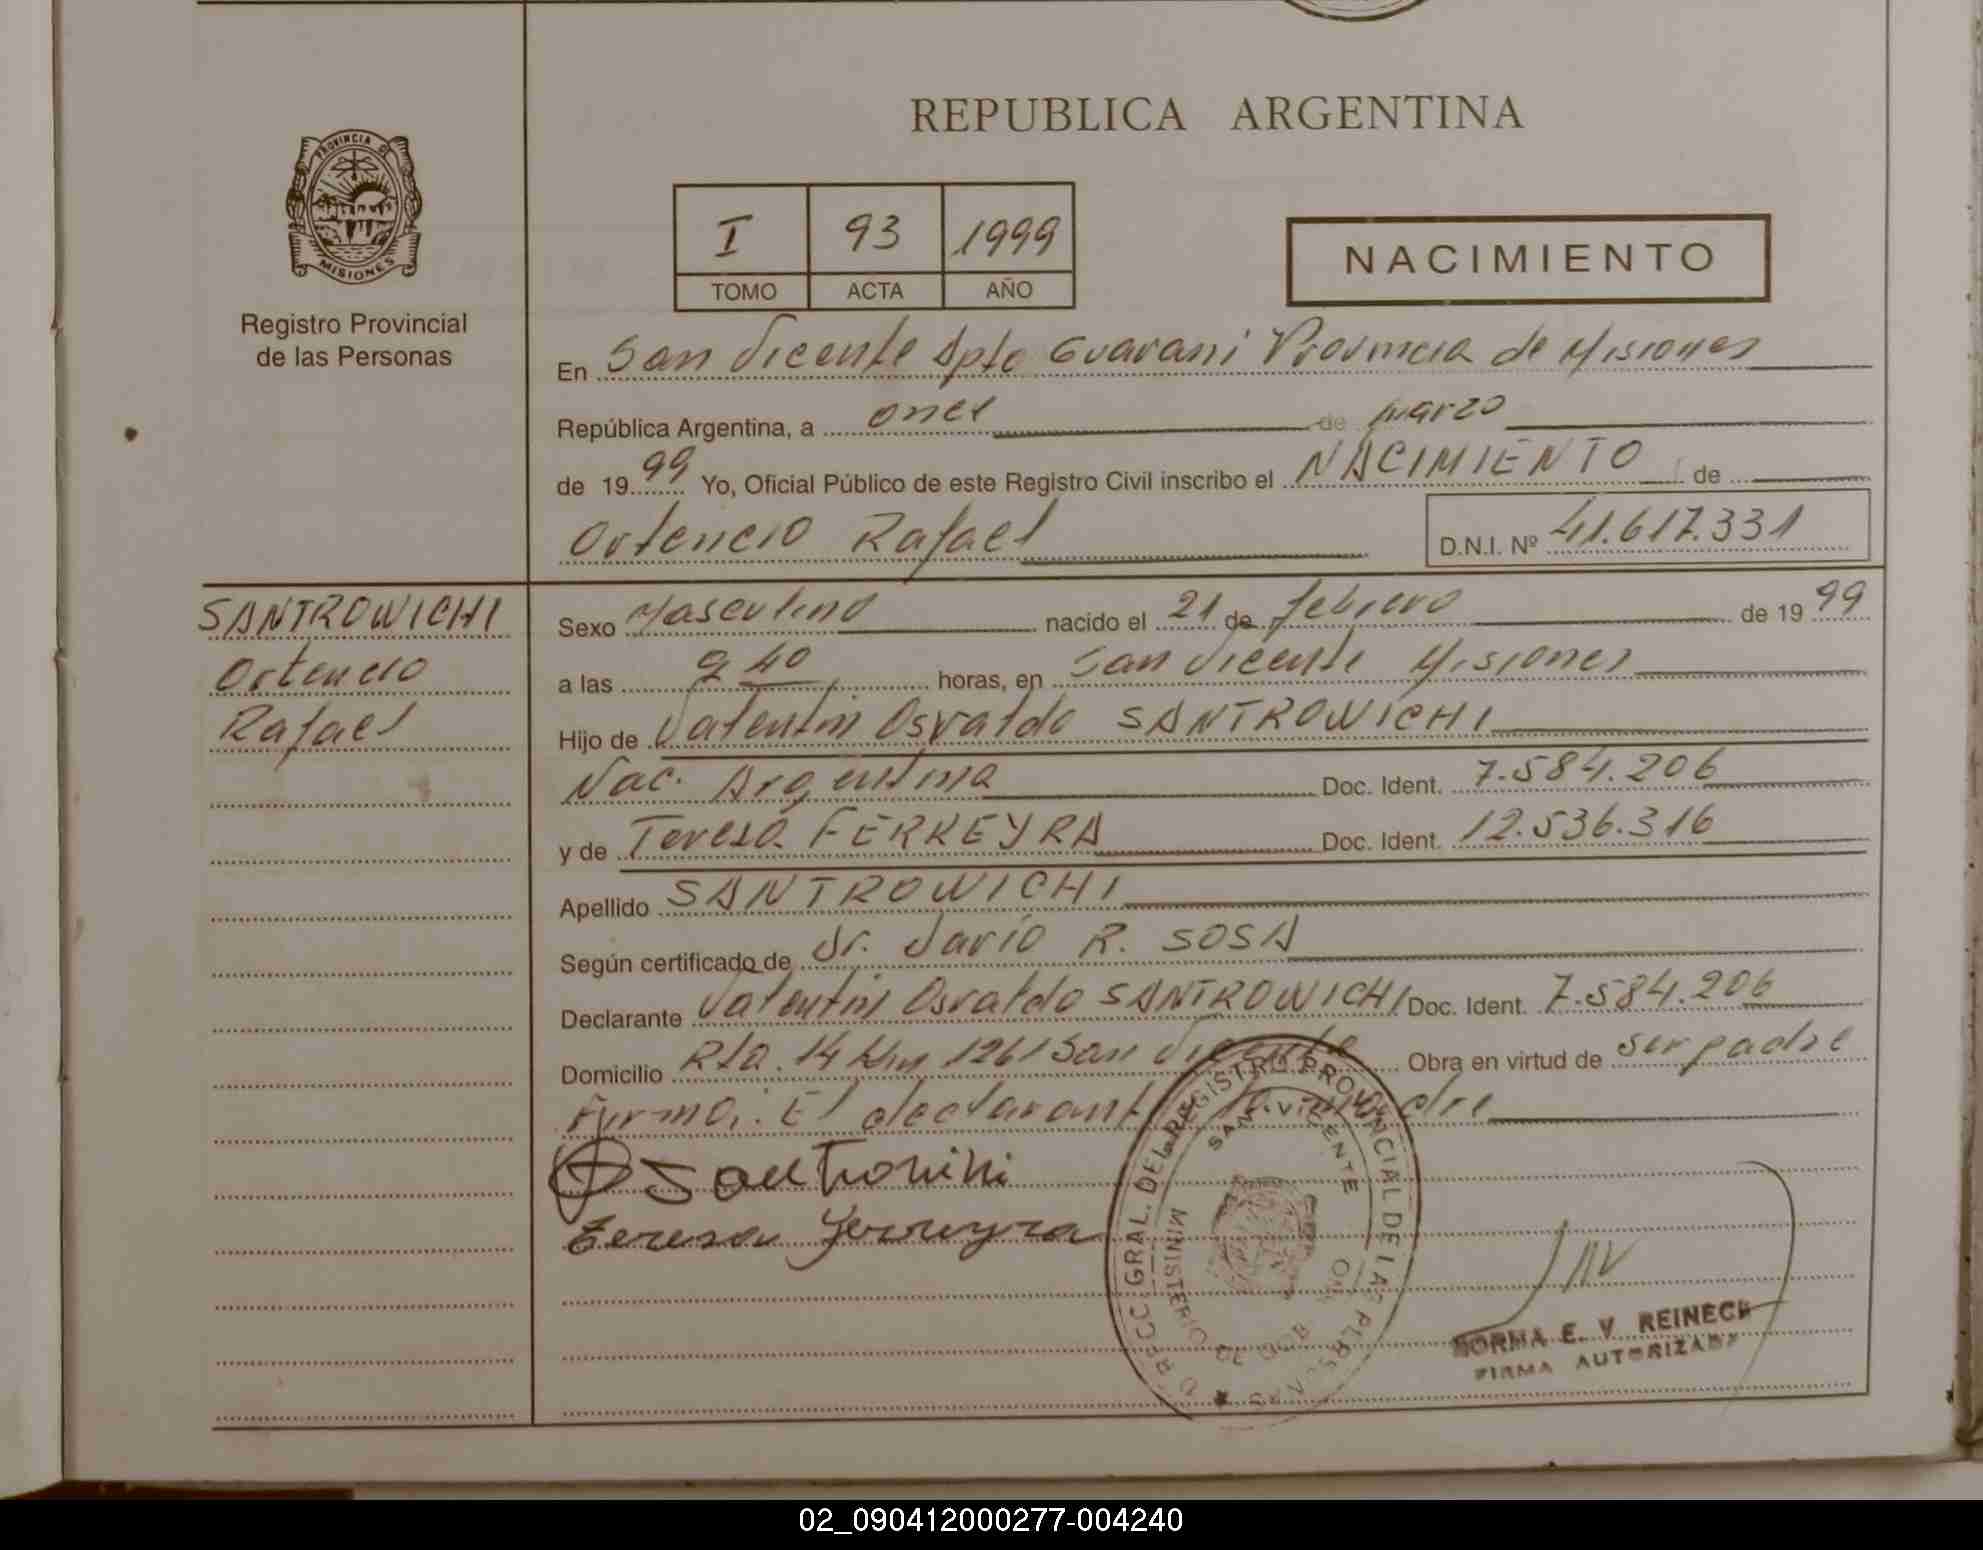 REPUBLICA ARGENTINA
PROVINCIA DE
MISIONES
Registro Provincial
de las Personas
I 93 1999
TOMO ACTA AÑO
NACIMIENTO
En San Vicente Dpto Guarani Provincia de Misiones
República Argentina, a once de marzo
de 1999 Yo, Oficial Público de este Registro Civil inscribo el NACIMIENTO de
Ortencio Rafael D.N.I. Nº 41.617.331
SANTROWICHI
Ortencio
Rafael
Sexo Masculino nacido el 21 de febrero de 1999
a las 9 40 horas, en San Vicente Misiones
Hijo de Valentin Osvaldo SANTROWICHI
Nac. Argentina Doc. Ident. 7.584.206
y de Teresa FERREYRA Doc. Ident. 12.536.316
Apellido SANTROWICHI
Según certificado de Dr. Dario R. SOSA
Declarante Valentin Osvaldo SANTROWICHI Doc. Ident. 7.584.206
Domicilio Rta. 14 Km 1261 San Vicente Obra en virtud de ser padre
Firma: El declarante la madre
Teresa Ferreyra
GRAL. DEL REGISTRO PROVINCIAL DE LAS PERSONAS
SAN VICENTE
MINISTERIO DE GOB
NORMA E. V. REINECK
FIRMA AUTORIZADA
02_090412000277-004240